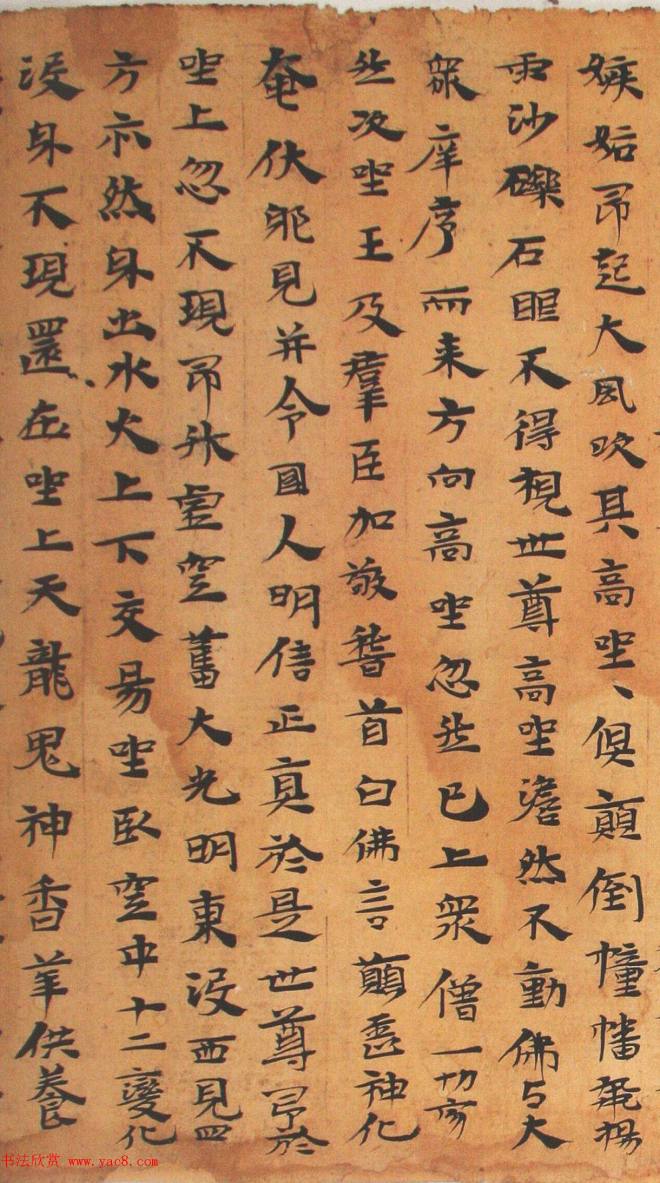 嫉妬即起大風吹其高坐、俱顛倒幢幡飛揚
雨沙礫石眼不得視世尊高坐澹然不動佛与大
衆庠序而来方向高坐忽然已上衆僧一切亦
然次坐王及羣臣加敬稽首白佛言願垂神化
奄伏邪見并令國人明信正真於是世尊即於
坐上忽不現即升虛空奮大光明東没西見四
方亦然身出水火上下交易坐臥空中十二變化
没身不現還在坐上天龍鬼神香華供養
书法欣赏 www.yac8.com